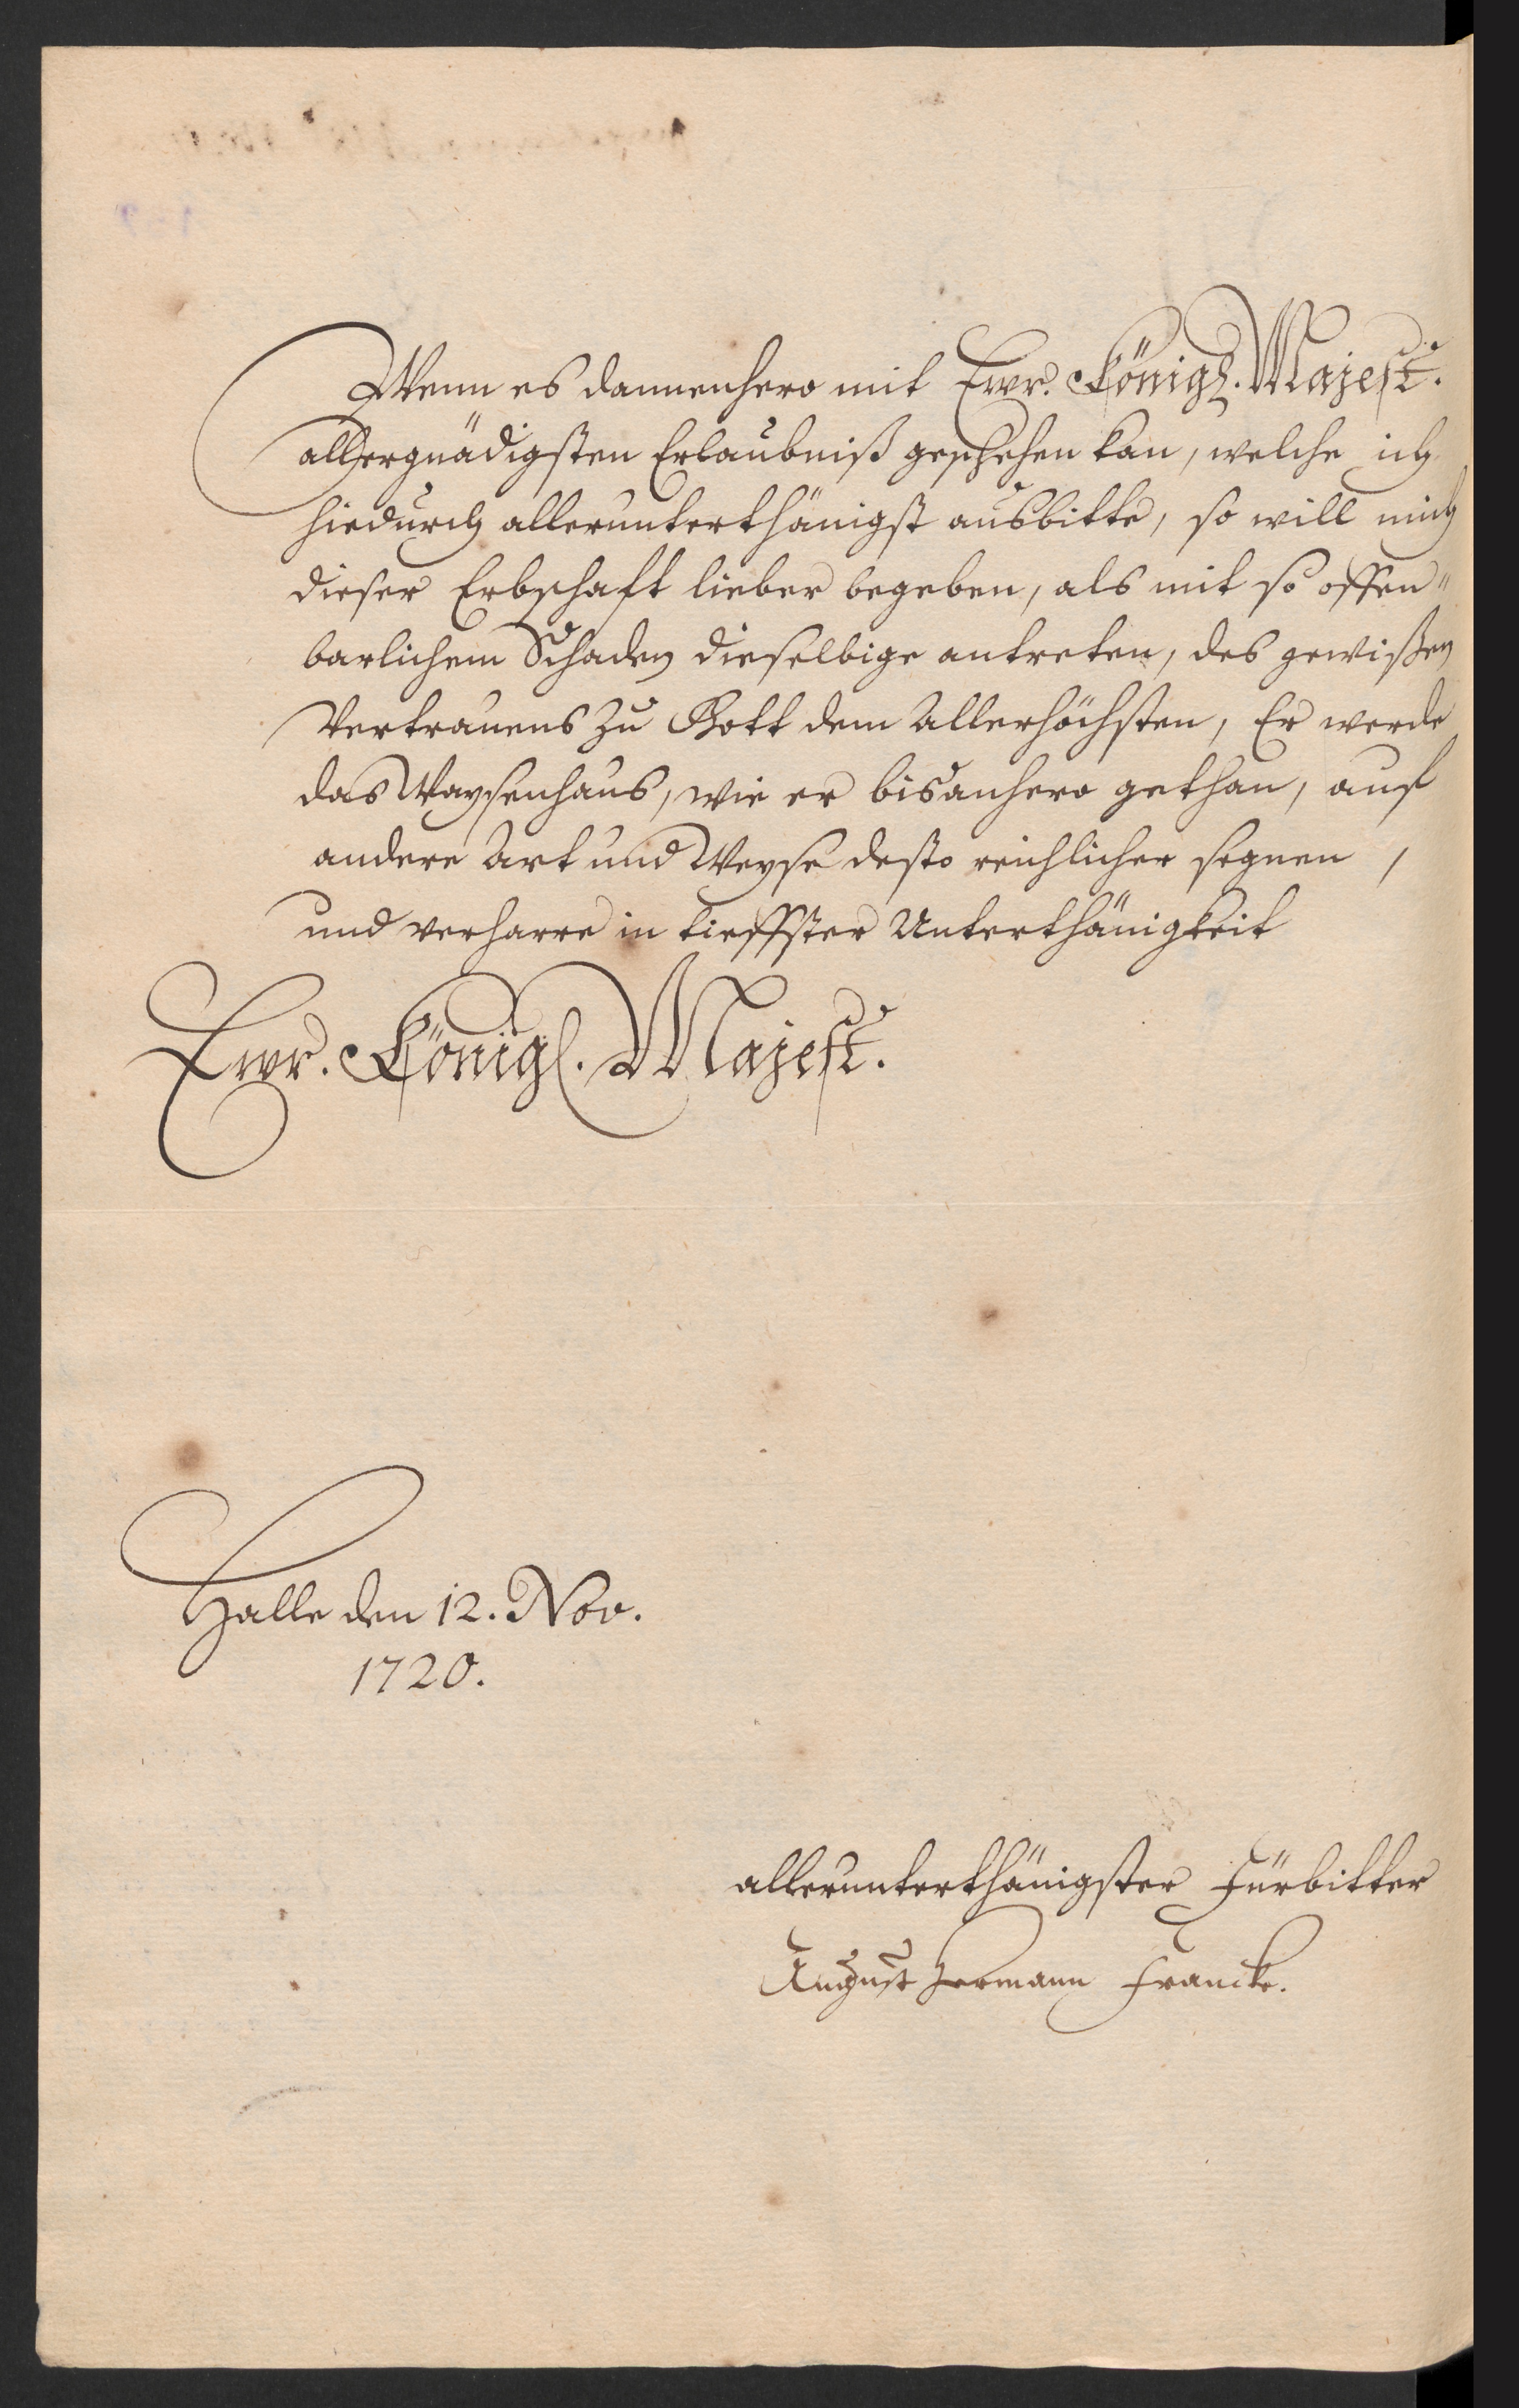 Wenn es dannenhero mit Ewr. Königl. Majest.
allergnädigsten Erlaubniß geschehen kan, welche ich
hiedurch allerunterthänigst ausbitte, so will mich
dieser Erbschaft lieber begeben, als mit so offen"
barlichem Schaden dieselbige antreten, des gewißen
Vertrauens zu Gott dem Allerhöchsten, Er werde
das Waysenhaus, wie er bisanhero gethan, auf
andere Art und Weyse desto reichlicher segnen,
und verharre in tieffster Unterthänigkeit
Ewr. Königl. Majest.
Halle den 12. Nov.
1720.
allerunterthänigster Fürbitter
August Hermann Francke.